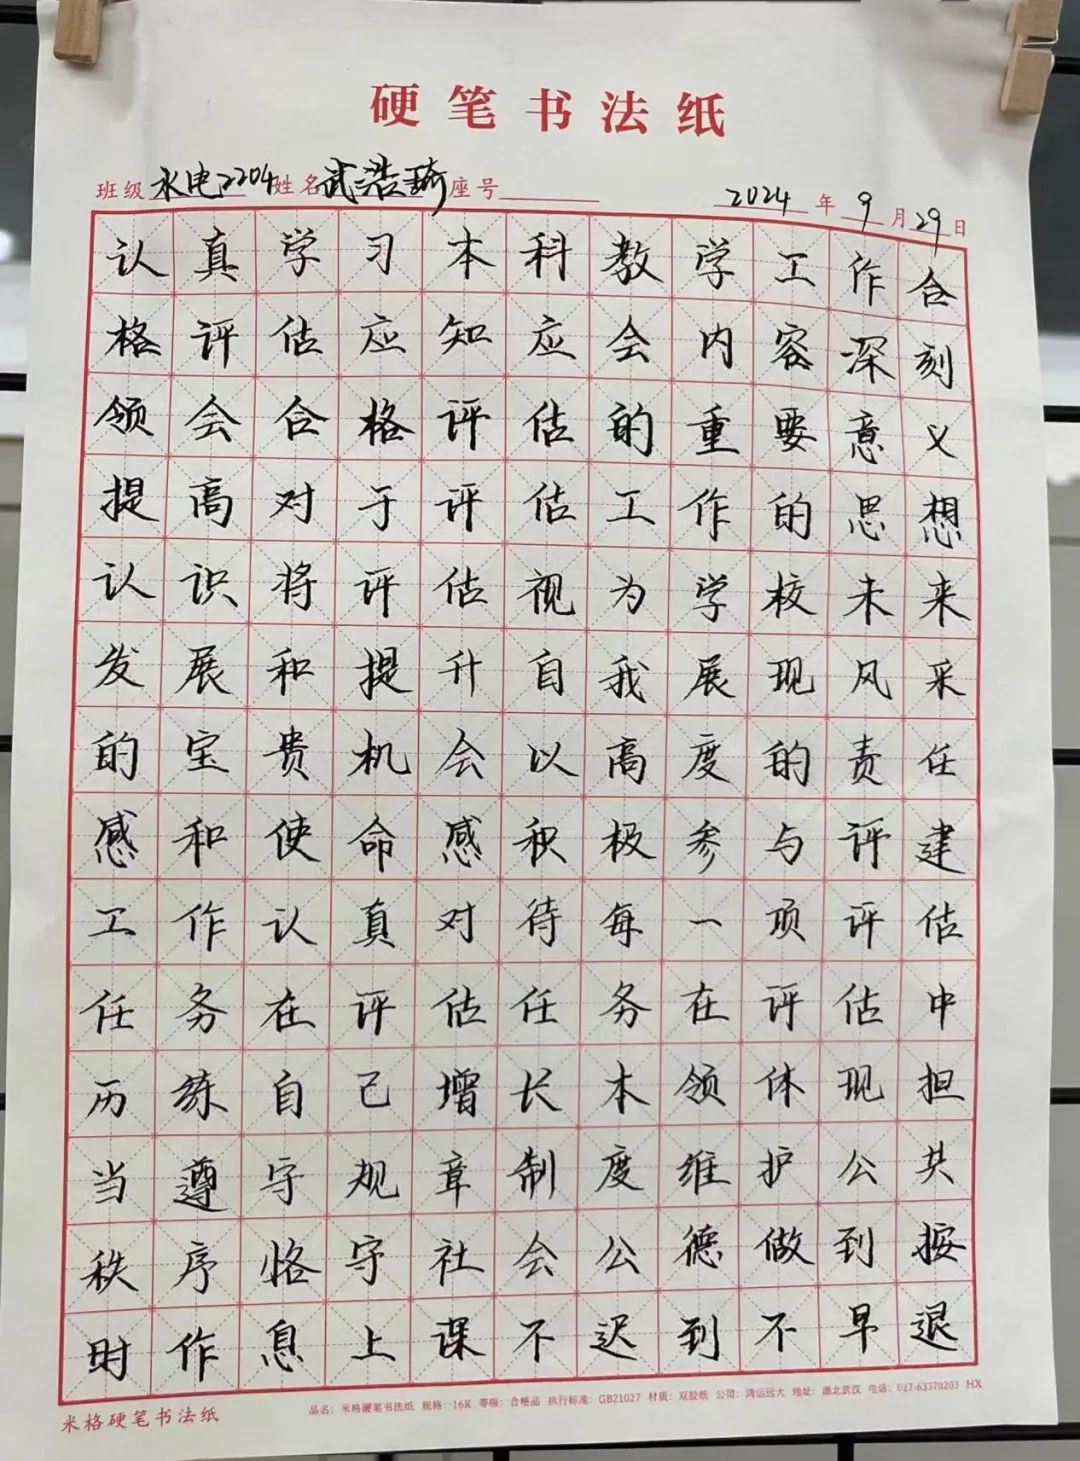 硬笔书法纸
班级 水电2204 姓名 武浩琦 座号 2024年9月29日
认真学习本科教学工作合
格评估应知应会内容深刻
领会合格评估的重要意义
提高对于评估工作的思想
认识将评估视为学校未来
发展和提升自我展现风采
的宝贵机会以高度的责任
感和使命感积极参与评建
工作认真对待每一项评估
任务在评估任务在评估中
历练自己增长本领体现担
当遵守规章制度维护公共
秩序恪守社会公德做到按
时作息上课不迟到不早退
米格硬笔书法纸 品名：米格硬笔书法纸 规格：16K 等级：合格品 执行标准：GB21027 材质：双胶纸 公司：鸿运远大 地址：湖北武汉 电话：027-63370203 HX